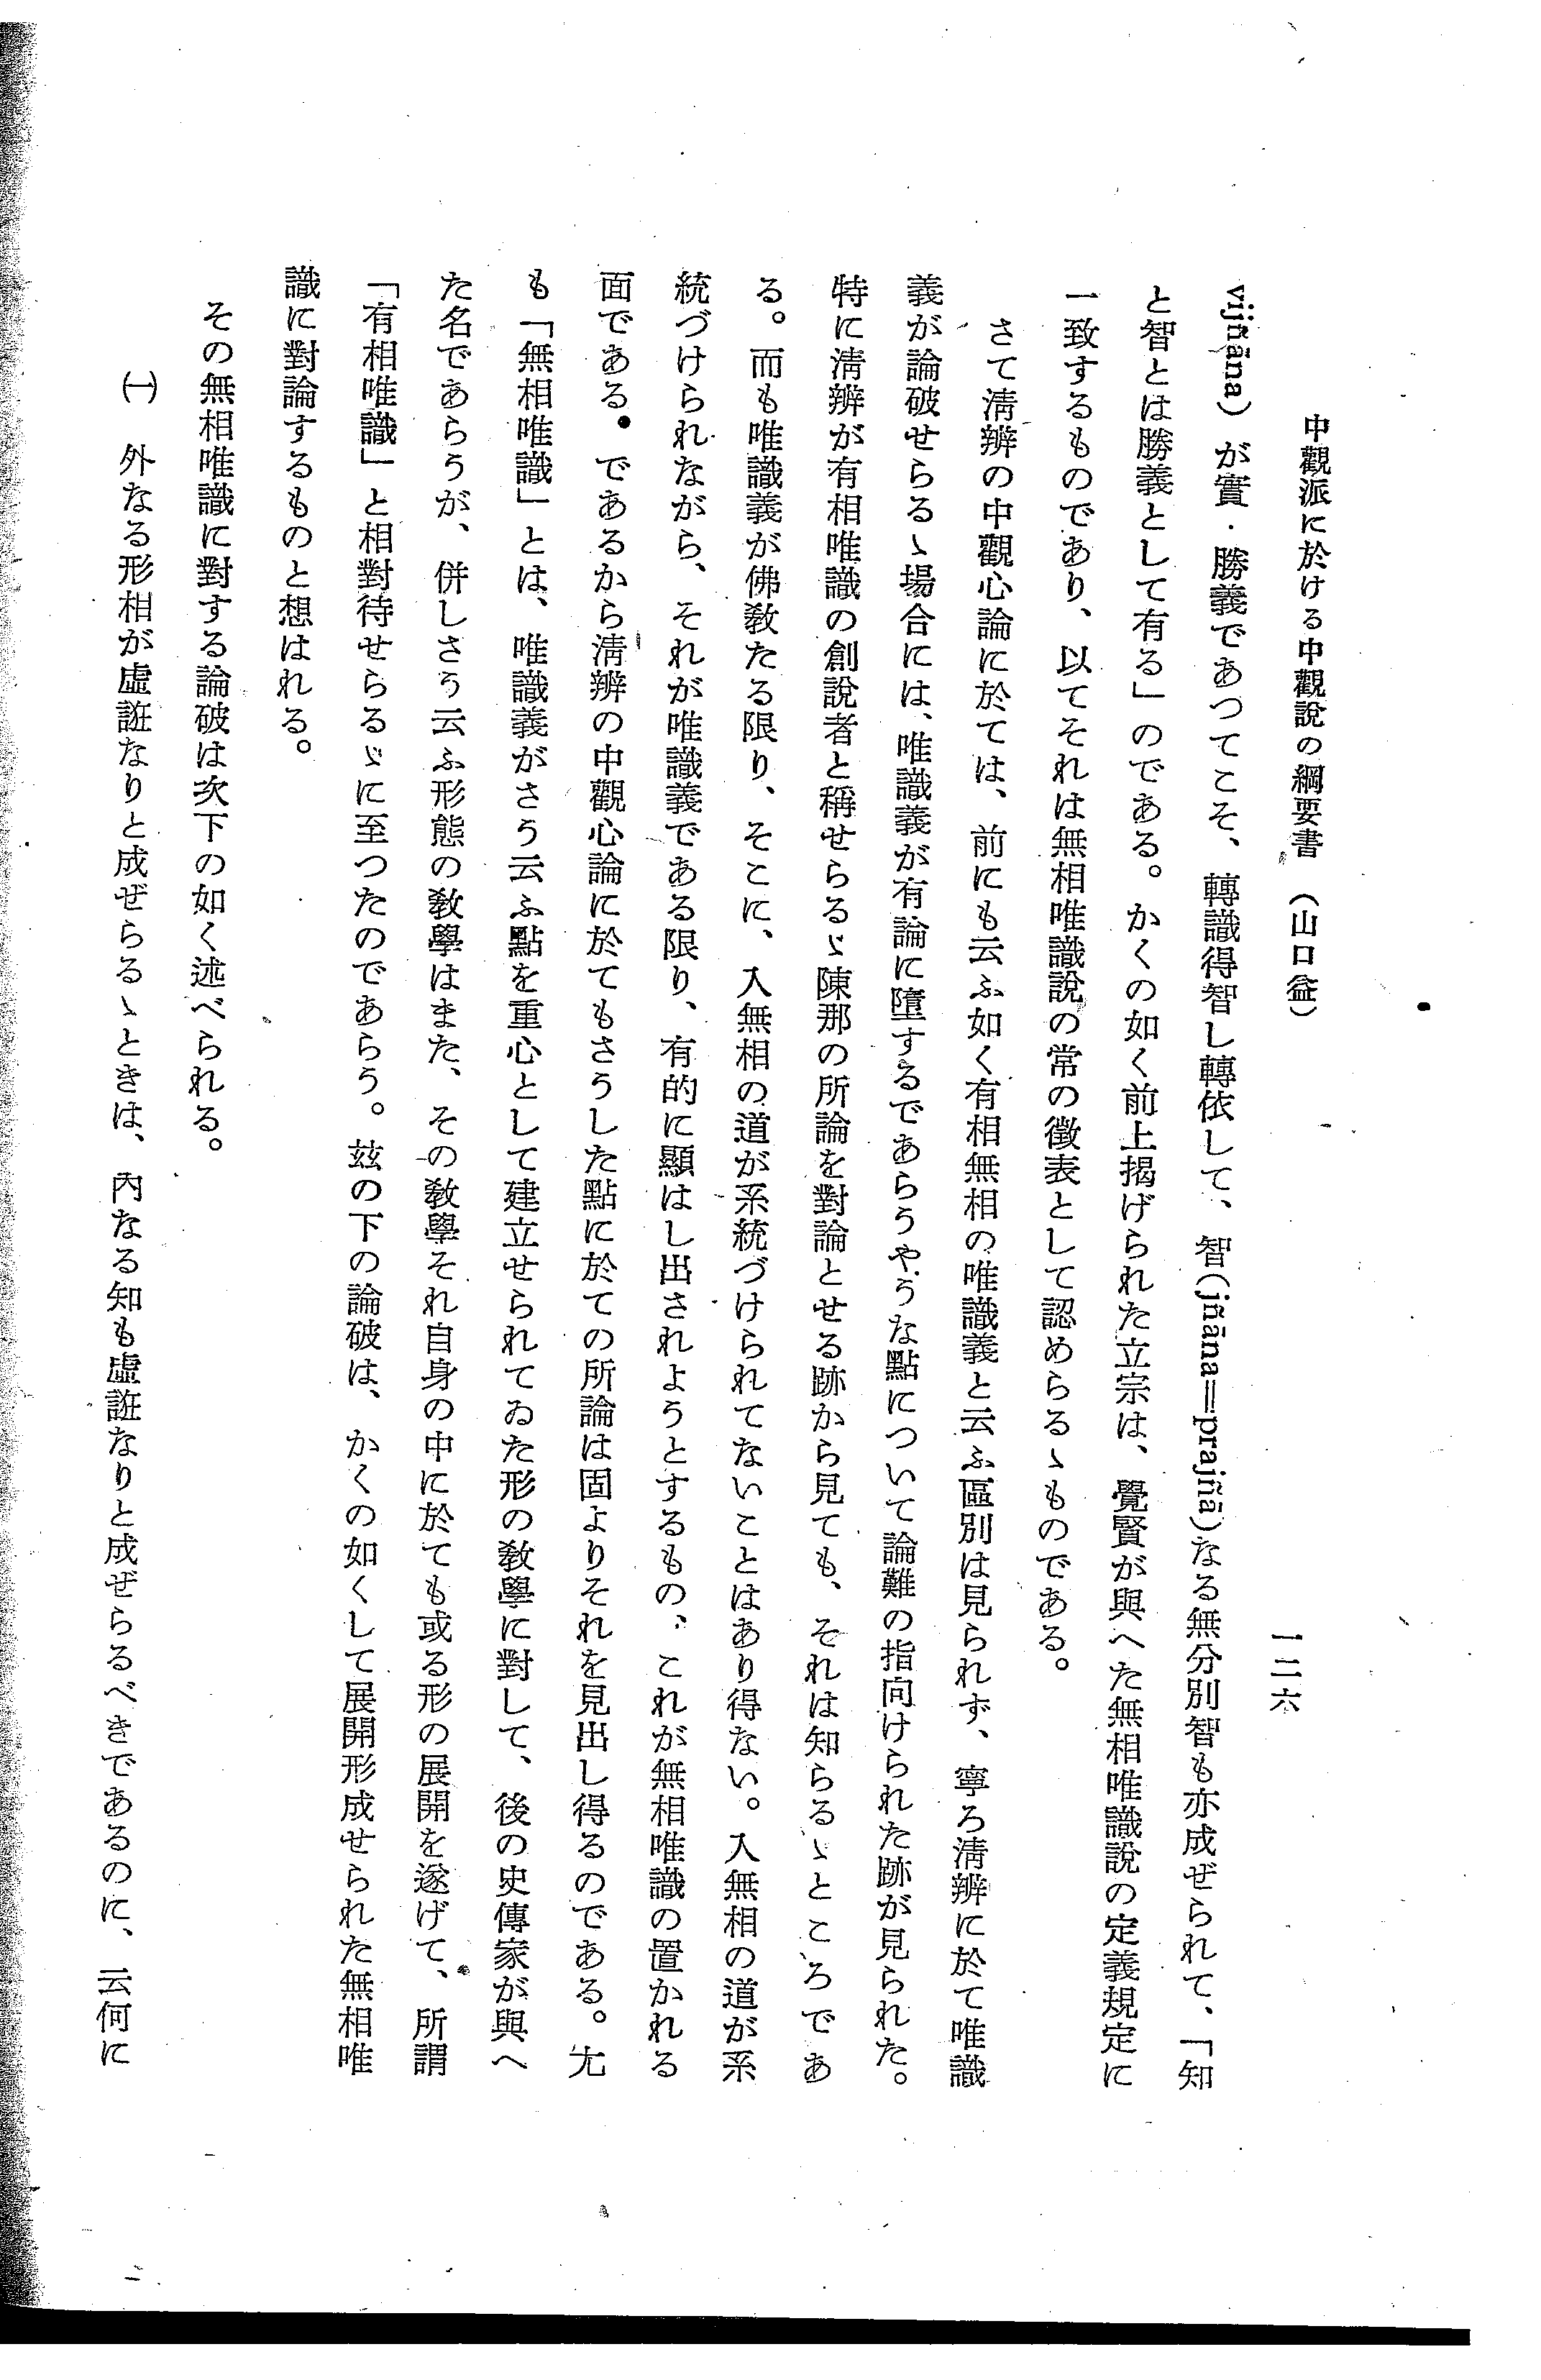 中觀派に於ける中觀說の綱要書　（山口益）
一二六
vijñāna）が實・勝義であつてこそ、轉識得智し轉依して、智(jñāna＝prajñā)なる無分別智も亦成ぜられて、「知
と智とは勝義として有る」のである。かくの如く前上揭げられた立宗は、覺賢が與へた無相唯識說の定義規定に
一致するものであり、以てそれは無相唯識說の常の徵表として認めらるゝものである。
さて淸辨の中觀心論に於ては、前にも云ふ如く有相無相の唯識義と云ふ區別は見られず、寧ろ淸辨に於て唯識
義が論破せらるゝ場合には、唯識義が有論に墮するであらうやうな點について論難の指向けられた跡が見られた。
特に淸辨が有相唯識の創說者と稱せらるゝ陳那の所論を對論とせる跡から見ても、それは知らるゝところであ
る。而も唯識義が佛敎たる限り、そこに、入無相の道が系統づけられてないことはあり得ない。入無相の道が系
統づけられながら、それが唯識義である限り、有的に顯はし出されようとするもの、これが無相唯識の置かれる
面である。であるから淸辨の中觀心論に於てもさうした點に於ての所論は固よりそれを見出し得るのである。尤
も「無相唯識」とは、唯識義がさう云ふ點を重心として建立せられてゐた形の敎學に對して、後の史傳家が與へ
た名であらうが、併しさう云ふ形態の敎學はまた、その敎學それ自身の中に於ても或る形の展開を遂げて、所謂
「有相唯識」と相對待せらるゞに至つたのであらう。玆の下の論破は、かくの如くして展開形成せられた無相唯
識に對論するものと想はれる。
その無相唯識に對する論破は次下の如く述べられる。
㈠　外なる形相が虛誑なりと成ぜらるゝときは、內なる知も虛誑なりと成ぜらるべきであるのに、云何に